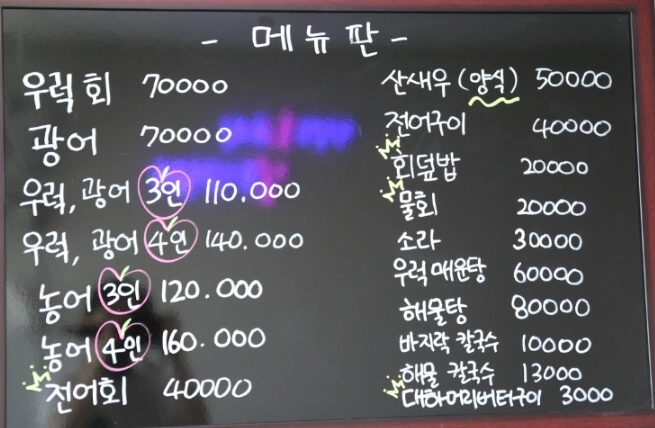 - 메뉴판 -
우럭회 70000
광어 70000
우럭, 광어 3인 110.000
우럭, 광어 4인 140.000
농어 3인 120.000
농어 4인 160.000
전어회 40000
산새우 (양식) 50000
전어구이 40000
회덮밥 20000
물회 20000
소라 30000
우럭매운탕 60000
해물탕 80000
바지락 칼국수 10000
해물 칼국수 13000
대하머리버터구이 3000